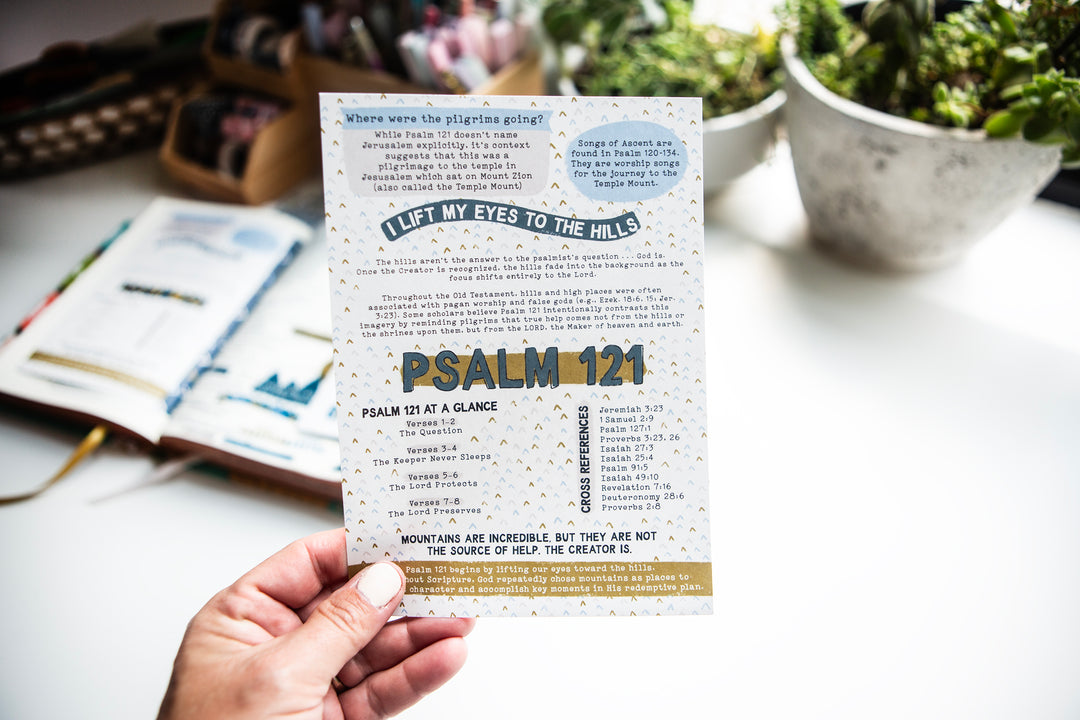 Where were the pilgrims going?
While Psalm 121 doesn't name
Jerusalem explicitly, it's context
suggests that this was a
pilgrimage to the temple in
Jesusalem which sat on Mount Zion
(also called the Temple Mount)
Songs of Ascent are
found in Psalm 120-134.
They are worship songs
for the journey to the
Temple Mount.
I LIFT MY EYES TO THE HILLS
The hills aren't the answer to the psalmist's question . . . God is.
Once the Creator is recognized, the hills fade into the background as the
focus shifts entirely to the Lord.
Throughout the Old Testament, hills and high places were often
associated with pagan worship and false gods (e.g., Ezek. 18:6, 15; Jer.
3:23). Some scholars believe Psalm 121 intentionally contrasts this
imagery by reminding pilgrims that true help comes not from the hills or
the shrines upon them, but from the LORD, the Maker of heaven and earth.
PSALM 121
PSALM 121 AT A GLANCE
Verses 1-2
The Question
Verses 3-4
The Keeper Never Sleeps
Verses 5-6
The Lord Protects
Verses 7-8
The Lord Preserves
CROSS REFERENCES
Jeremiah 3:23
1 Samuel 2:9
Psalm 127:1
Proverbs 3:23, 26
Isaiah 27:3
Isaiah 25:4
Psalm 91:5
Isaiah 49:10
Revelation 7:16
Deuteronomy 28:6
Proverbs 2:8
MOUNTAINS ARE INCREDIBLE, BUT THEY ARE NOT
THE SOURCE OF HELP. THE CREATOR IS.
Psalm 121 begins by lifting our eyes toward the hills.
Scripture, God repeatedly chose mountains as places to
character and accomplish key moments in His redemptive plan.